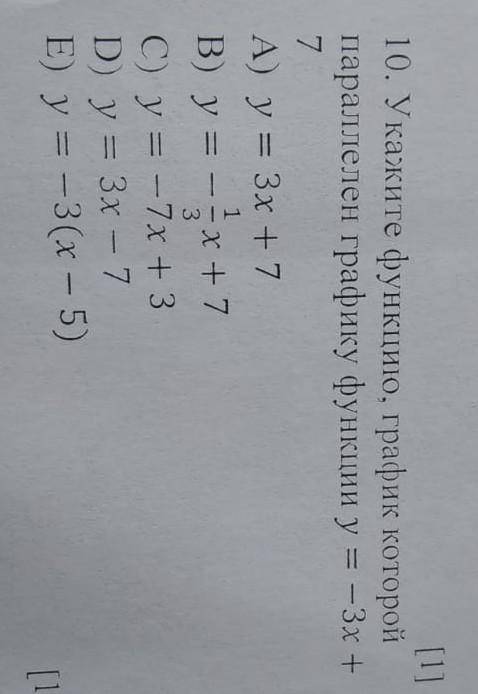 [1]
10. Укажите функцию, график которой
параллелен графику функции y = −3x +
7
A) y = 3x + 7
B) y = −1/3x + 7
C) y = −7x + 3
D) y = 3x − 7
E) y = −3(x − 5)
[1